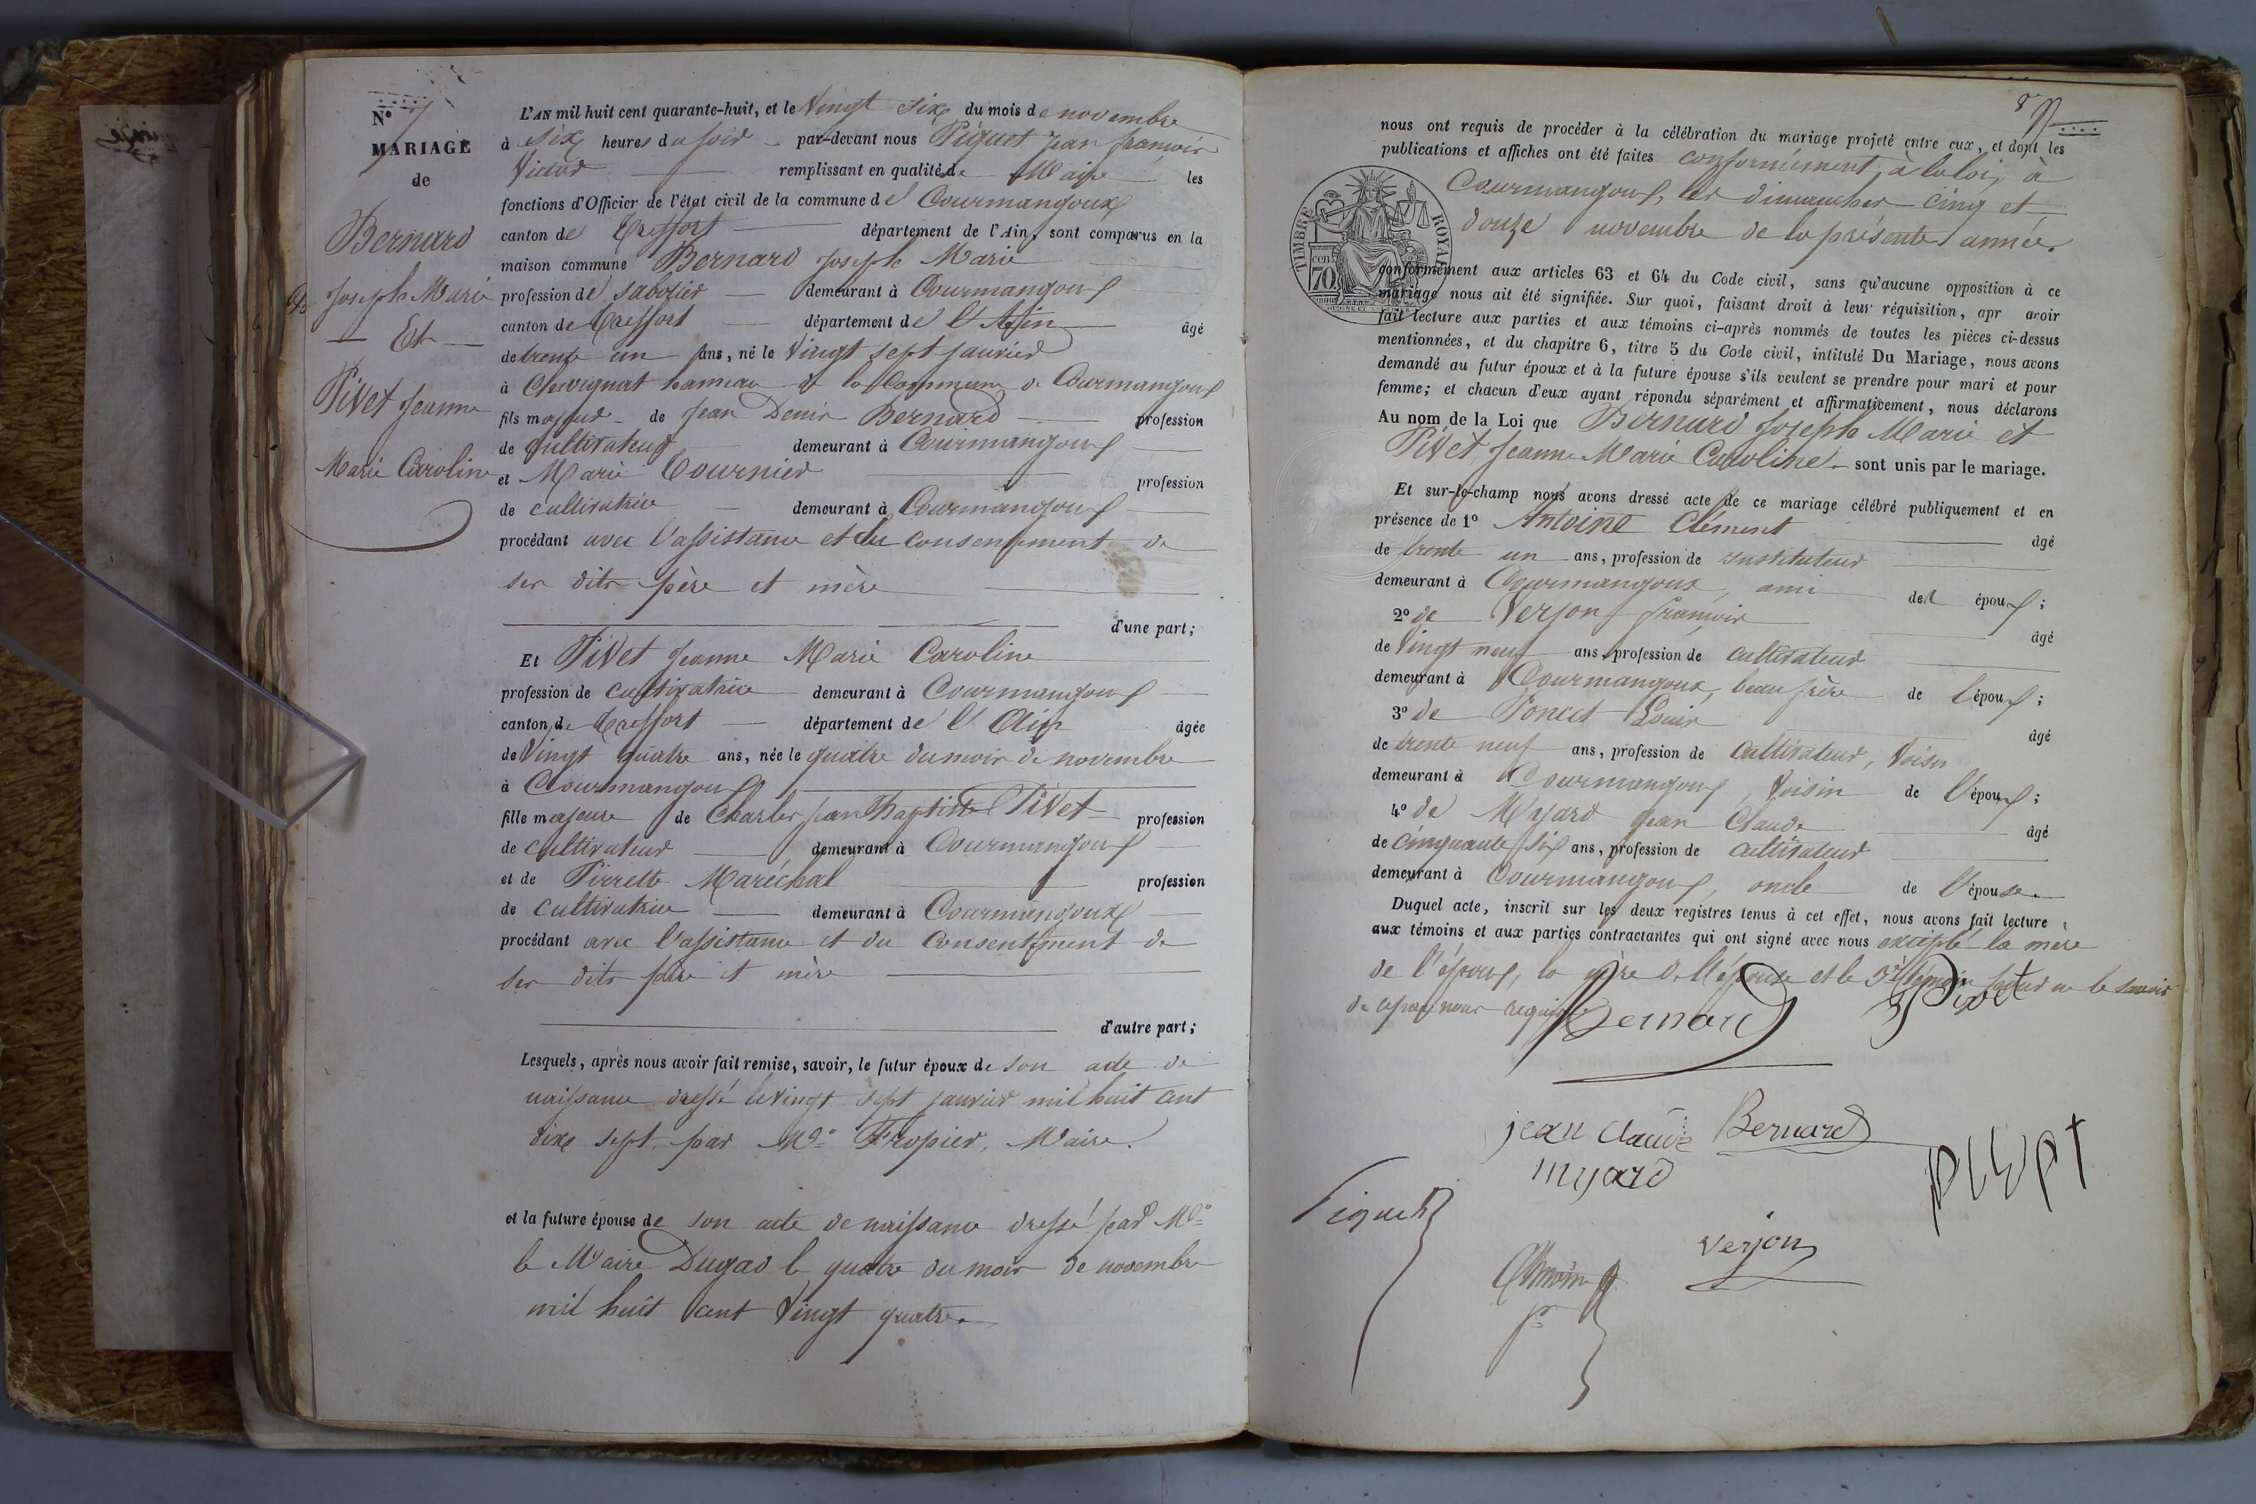 N° 7
MARIAGE
de
Bernard
Joseph Marie
Et
Pivet Jeanne
Marie Caroline
L'AN mil huit cent quarante-huit, et le Vingt six du mois de novembre
à six heures du soir par-devant nous Piquet Jean françois
Victor remplissant en qualité de Maire les
fonctions d'Officier de l'état civil de la commune de Courmangoux
canton de Treffort département de l'Ain, sont comparus en la
maison commune Bernard Joseph Marie
profession de sabotier demeurant à Courmangoux
canton de Treffort département de l'Ain âgé
de trente un ans, né le Vingt sept janvier
à Chevignat hameau de la Commune de Courmangoux
fils majeur de Jean Denis Bernard profession
de cultivateur demeurant à Courmangoux
et Marie Tournier profession
de cultivatrice demeurant à Courmangoux
procédant avec l'assistance et du consentement de
ses dits père et mère
d'une part;
Et Pivet Jeanne Marie Caroline
profession de cultivatrice demeurant à Courmangoux
canton de Treffort département de l'Ain âgée
de Vingt quatre ans, née le quatre du mois de novembre
à Courmangoux
fille majeure de Charles Jean Baptiste Pivet profession
de cultivateur demeurant à Courmangoux
et de Pierrette Maréchal profession
de cultivatrice demeurant à Courmangoux
procédant avec l'assistance et du consentement de
ses dits père et mère
d'autre part;
Lesquels, après nous avoir fait remise, savoir, le futur époux de son acte de
naissance dressé le vingt sept janvier mil huit cent
dix sept par Mr Tropier, Maire.
et la future épouse de son acte de naissance dressé par Mr
le Maire Dugad le quatre du mois de novembre
mil huit cent vingt quatre.
nous ont requis de procéder à la célébration du mariage projeté entre eux, et dont les
publications et affiches ont été faites conformément à la loi, à
Courmangoux, les dimanches cinq et
douze novembre de la présente année.
TIMBRE ROYAL
70
conformément aux articles 63 et 64 du Code civil, sans qu'aucune opposition à ce
mariage nous ait été signifiée. Sur quoi, faisant droit à leur réquisition, apr avoir
fait lecture aux parties et aux témoins ci-après nommés de toutes les pièces ci-dessus
mentionnées, et du chapitre 6, titre 5 du Code civil, intitulé Du Mariage, nous avons
demandé au futur époux et à la future épouse s'ils veulent se prendre pour mari et pour
femme; et chacun d'eux ayant répondu séparément et affirmativement, nous déclarons
Au nom de la Loi que Bernard Joseph Marie et
Pivet Jeanne Marie Caroline sont unis par le mariage.
Et sur-le-champ nous avons dressé acte de ce mariage célébré publiquement et en
présence de 1° Antoine Clément âgé
de trente un ans, profession de instituteur
demeurant à Courmangoux, ami de l'époux;
2° de Verjon françois âgé
de Vingt neuf ans, profession de cultivateur
demeurant à Courmangoux, beau frère de l'époux;
3° de Poncet Louis âgé
de trente neuf ans, profession de cultivateur, Voisin
demeurant à Courmangoux, Voisin de l'époux;
4° de Myard Jean Claude âgé
de cinquante six ans, profession de cultivateur
demeurant à Courmangoux, oncle de l'épouse
Duquel acte, inscrit sur les deux registres tenus à cet effet, nous avons fait lecture
aux témoins et aux parties contractantes qui ont signé avec nous excepté la mère
de l'époux, la mère de l'épouse et le 3e témoin pour ne le savoir
de ce par nous requis
Bernard Pivet
jean claude Bernard
myard
pivet
Piquet
Verjon
Antoine